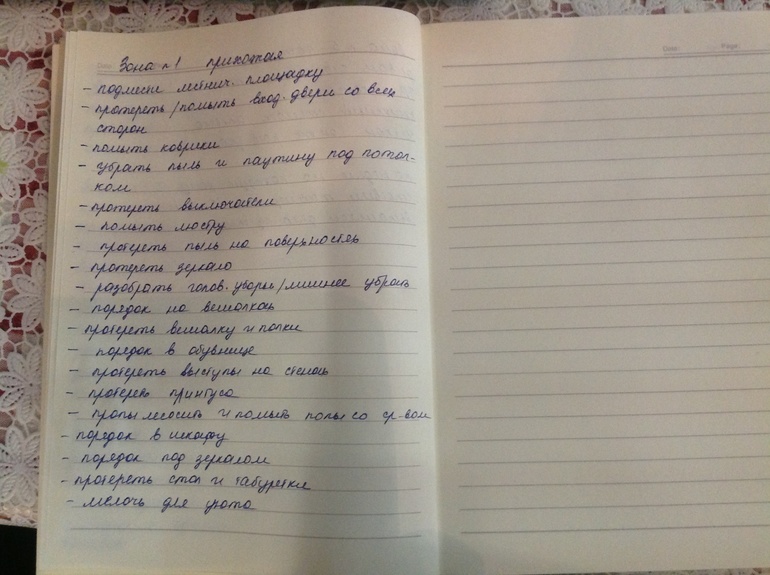 Зона №1 прихожая
- подмести лестнич. площадку
- протереть/помыть вход. двери со всех
сторон
- помыть коврики
- убрать пыль и паутину под потол-
ком
- протереть выключатели
- помыть люстру
- протереть пыль на поверхностях
- протереть зеркало
- разобрать голов. уборы/лишнее убрать
- порядок на вешалках
- протереть вешалку и полки
- порядок в обувнице
- протереть выступы на стенах
- протереть плинтуса
- пропылесосить и помыть полы со ср-вом
- порядок в шкафу
- порядок под зеркалом
- протереть стол и табуретки
- мелочь для уюта
Date: Page: